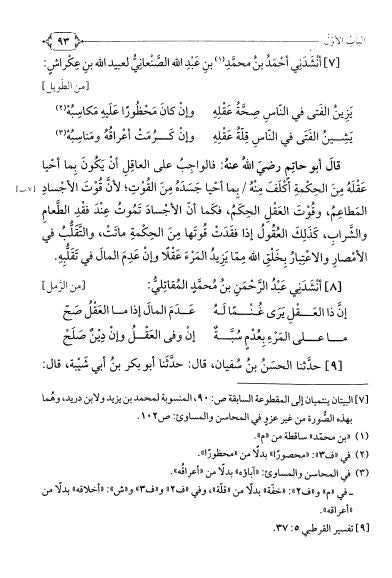 الباب الأوّل
٩٣
[٧] أنْشَدَنِي أحْمَدُ بنُ محمَّدِ(١) بنِ عَبْدِ الله الصَّنْعانِيُّ لعبيد الله بنِ عِكْراشٍ:
[من الطَّويل]
يَزِينُ الفَتَى في النّاسِ صِحَّةُ عَقْلِهِ وإنْ كانَ مَحْظُورًا عَلَيهِ مَكاسِبُهْ(٢)
يَشِينُ الفَتَى في النّاسِ قِلَّةُ عَقْلِهِ وإنْ كَرُمَتْ أعْراقُهُ ومَناسِبُهْ(٣)
قالَ أبو حاتِمٍ رَضِيَ اللهُ عنهُ: فالواجِبُ على العاقِلِ أنْ يَكُونَ بِما أحْيا
عَقْلَهُ مِنَ الحِكْمةِ أكْلَفَ مِنْهُ / بِما أحْيا جَسَدَهُ مِنَ القُوْتِ؛ لأنَّ قُوْتَ الأجْسادِ [٧ب]
المَطاعِمُ، وقُوْتَ العَقْلِ الحِكَمُ، فكَما أنّ الأجْسادَ تَمُوتُ عِنْدَ فقْدِ الطَّعامِ
والشَّرابِ، كَذَلِكَ العُقُولُ إذا فقَدَتْ قُوتَها مِنَ الحِكْمةِ ماتَتْ، والتَّقَلُّبُ في
الأمْصارِ والاعْتِبارُ بِخَلْقِ اللهِ مِمّا يَزِيدُ المَرْءَ عَقْلًا وإنْ عَدِمَ المالَ في تَقَلُّبِهِ.
[٨] أنْشَدَنِي عَبْدُ الرَّحْمَنِ بنُ مُحمَّدٍ المُقاتِلِيُّ: [من الرَّمل]
إنَّ ذا العَقْلِ يَرَى غُنْمًا لَهُ عَدَمَ المالِ إذا ما العَقْلُ صَحّ
ما على المَرْءِ بِعُدْمٍ سُبَّةٌ إنْ وفى العَقْلُ وإنْ دِيْنٌ صَلَحْ
[٩] حدَّثنا الحسَنُ بنُ سُفيان، قال: حدَّثنا أبو بكر بنُ أبي شَيْبة، قال:
[٧] البيتان ينتميان إلى المقطوعة السابقة ص: ٩٠، المنسوبة لمحمد بن يزيد ولابن دريد، وهُما
بهذه الصُّورة من غير عزو في المحاسن والمساوئ: ص١٠٢.
(١) «بن محمّد» ساقطة من «م».
(٢) في «ف٣»: «محصورًا» بدلًا من «محظورًا».
(٣) في المحاسن والمساوئ: «آباؤه» بدلًا من «أعراقُه».
ـ في «م» و«ف٢»: «خفّة» بدلًا من «قلّة»، وفي «ف٢» و«ف٣» و«ش»: «أخلاقه» بدلًا من
«أعراقه».
[٩] تفسير القرطبي ٥: ٣٧.